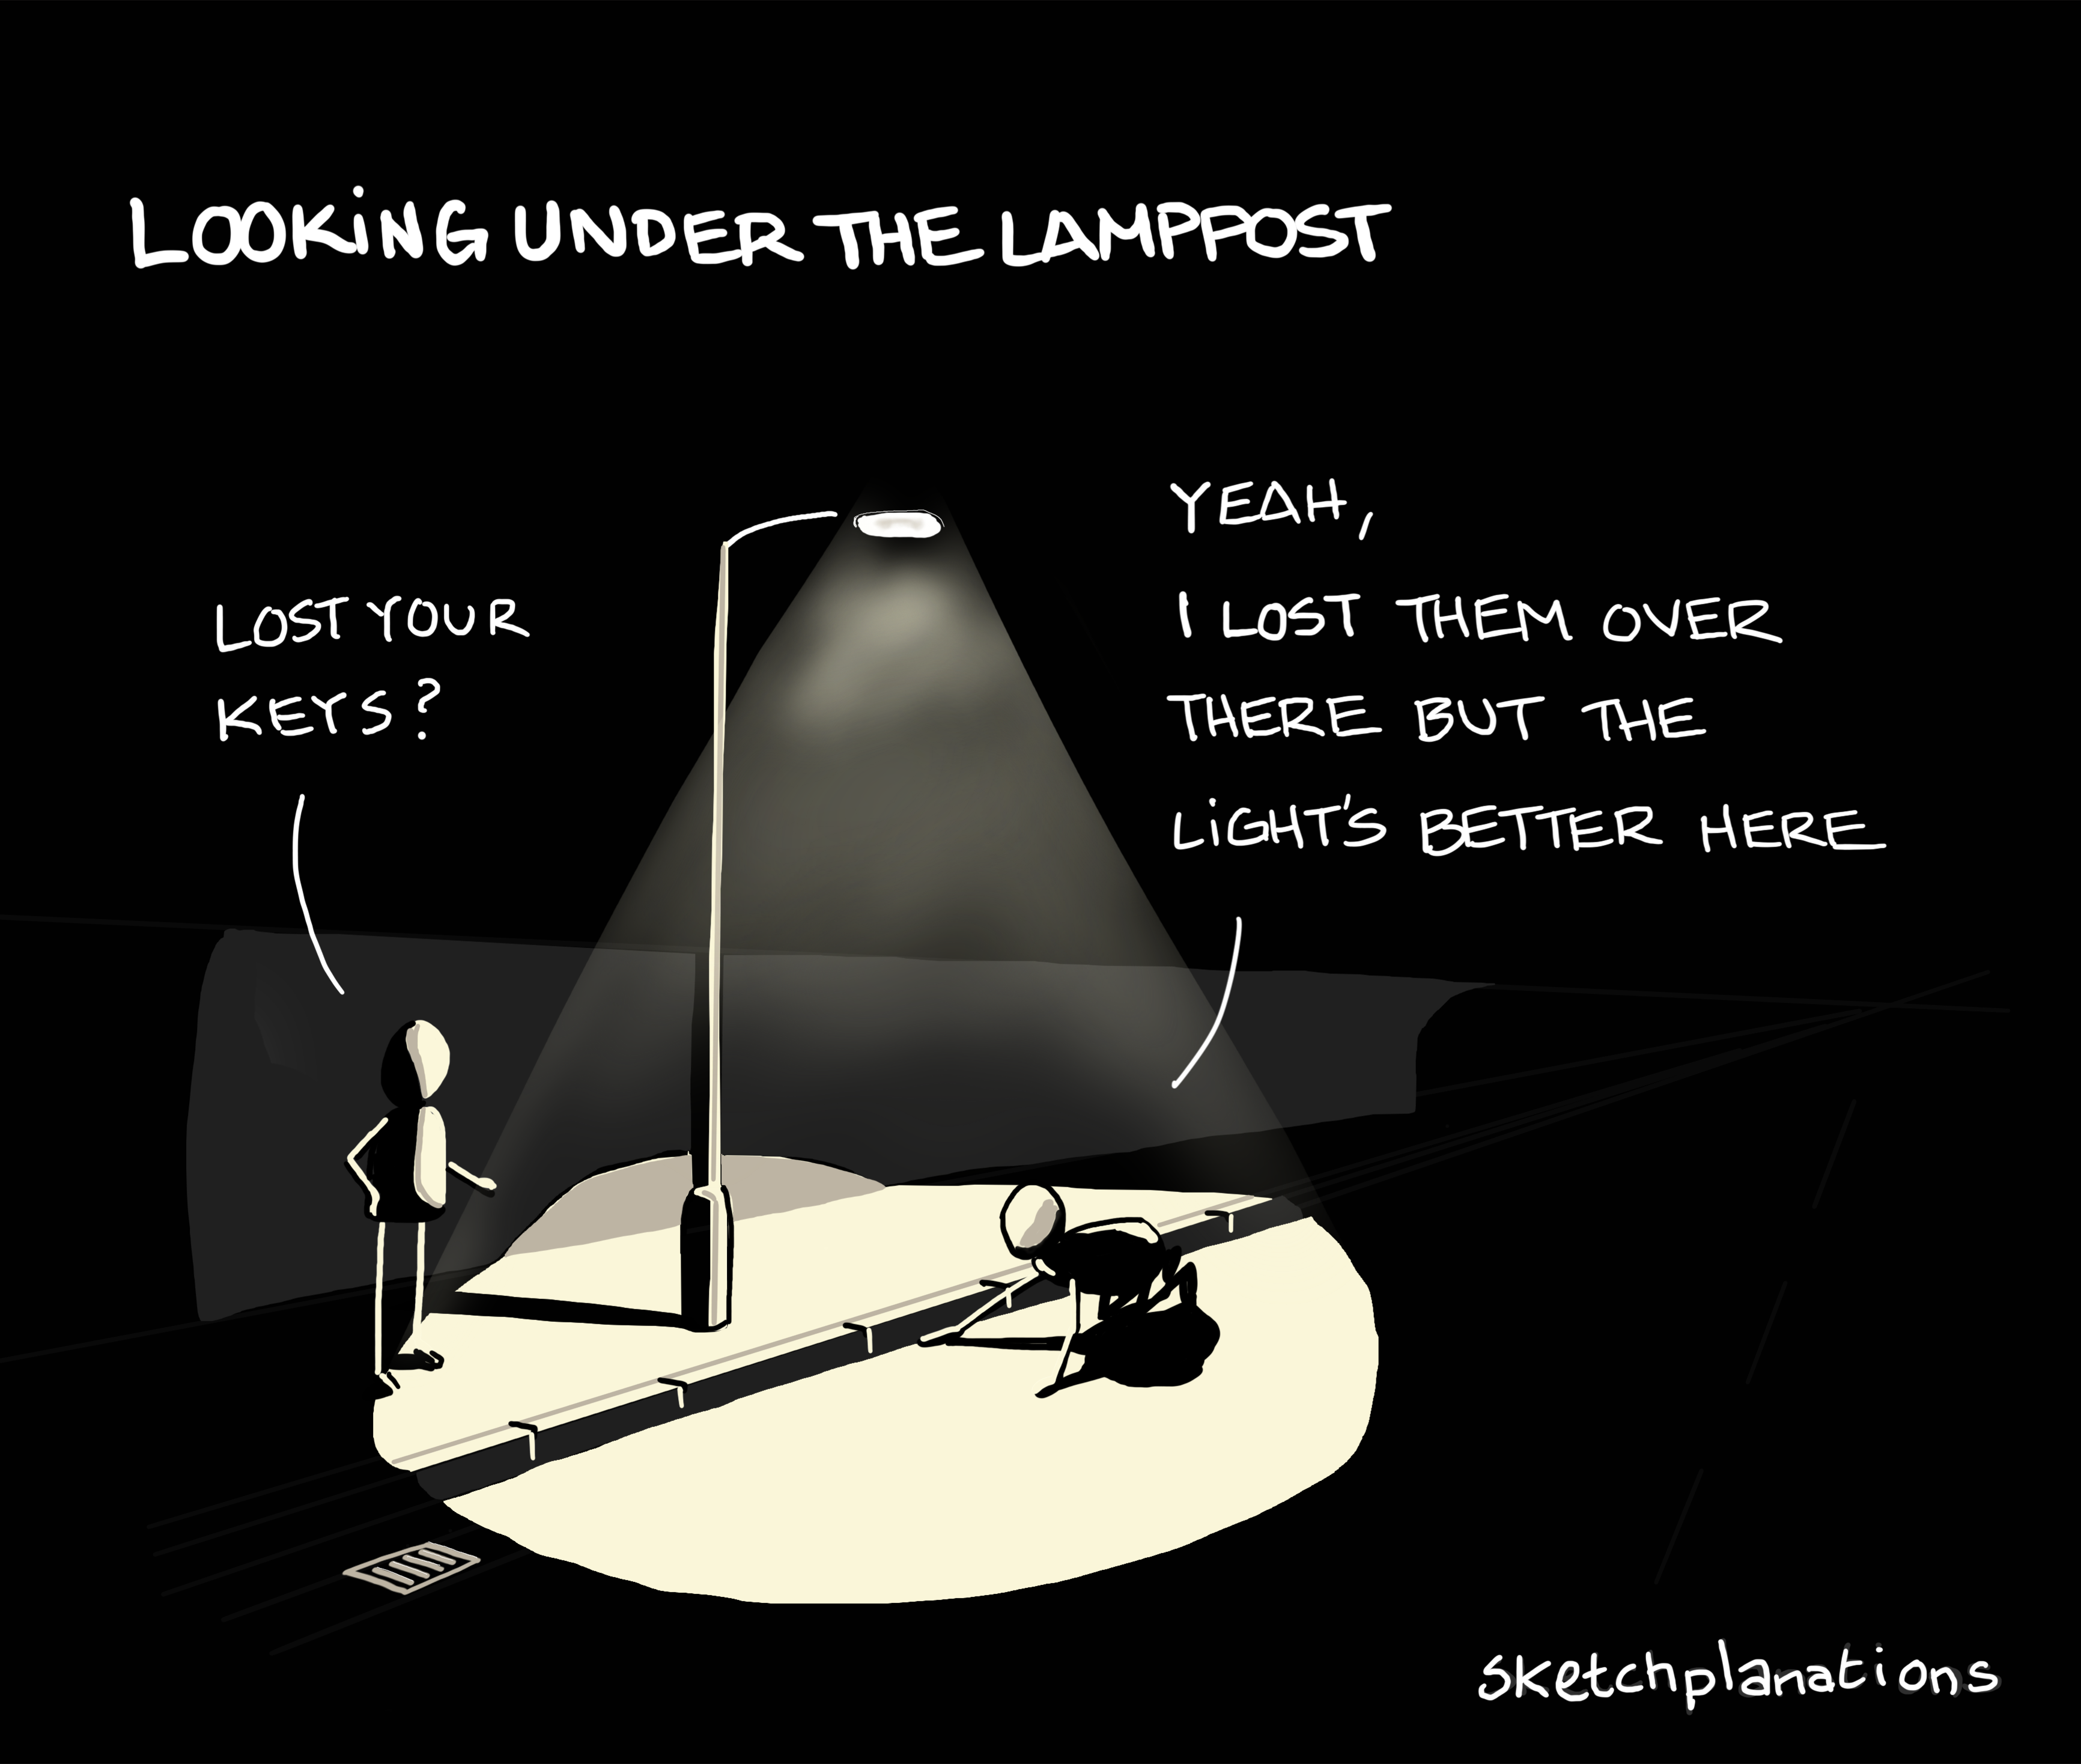 LOOKING UNDER THE LAMPPOST
LOST YOUR
KEYS?
YEAH,
I LOST THEM OVER
THERE BUT THE
LIGHT'S BETTER HERE
sketchplanations